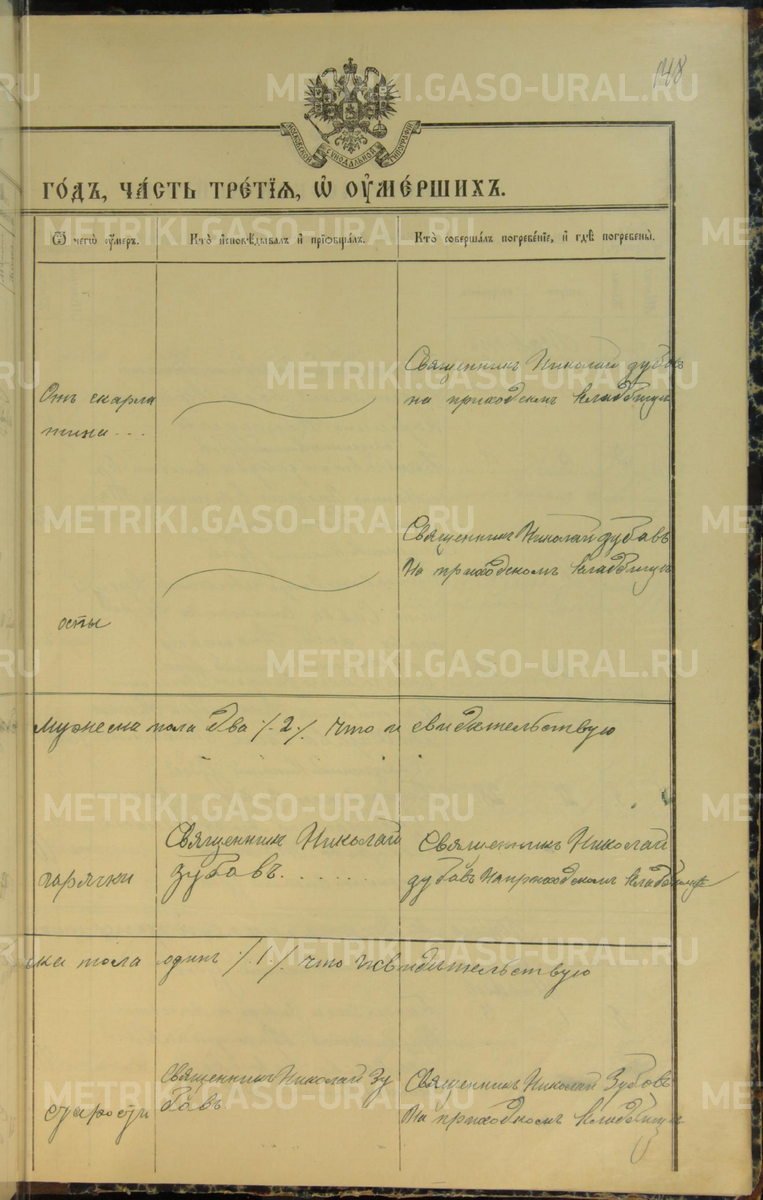 148
МОСКОВСКОЙ СѴНОДАЛЬНОЙ ТИПОГРАФІИ
ГО́ДЪ, ЧА́СТЬ ТРЕ́ТІѦ, Ѡ҆ ОУ҆МЕ́РШИХЪ.
Ѿ чегѡ̀ оу҆́меръ.
Кто̀ и҆сповѣ́дывалъ и҆ прїѡбща́лъ.
Кто̀ соверша́лъ погребе́нїе, и҆ гдѣ̀ погребены̀.
Отъ скарла
тины...
Священникъ Николай Зубовъ
на приходскомъ кладбищѣ
оспы
Священникъ Николай Зубовъ
На приходскомъ кладбищѣ
мужеска пола два /.2/. что и свидѣтельствую
горячки
Священникъ Николай
Зубовъ.......
Священникъ Николай
Зубовъ На приходскомъ кладбищѣ
ска пола одинъ /.1/. что и свидѣтельствую
старости
Священникъ Николай Зу
бовъ
Священникъ Николай Зубовъ
На приходскомъ кладбищѣ
METRIKI.GASO-URAL.RU